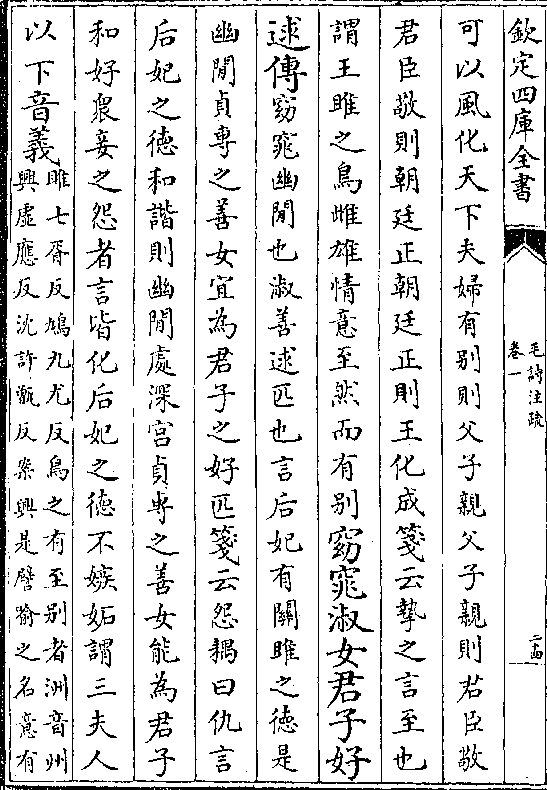 欽定四庫全書
毛詩注疏
卷一
二十四
可以風化天下夫婦有别則父子親父子親則君臣敬
君臣敬則朝廷正朝廷正則王化成箋云摯之言至也
謂王雎之鳥雌雄情意至然而有别窈窕淑女君子好
逑傳窈窕幽閒也淑善逑匹也言后妃有關雎之德是
幽閒貞專之善女宜為君子之好匹箋云怨耦曰仇言
后妃之德和諧則幽閒處深宫貞專之善女能為君子
和好衆妾之怨者言皆化后妃之德不嫉妬謂三夫人
以下音義雎七胥反鳩九尤反鳥之有至别者洲音州
興虚應反沈許甑反案興是譬喻之名意有